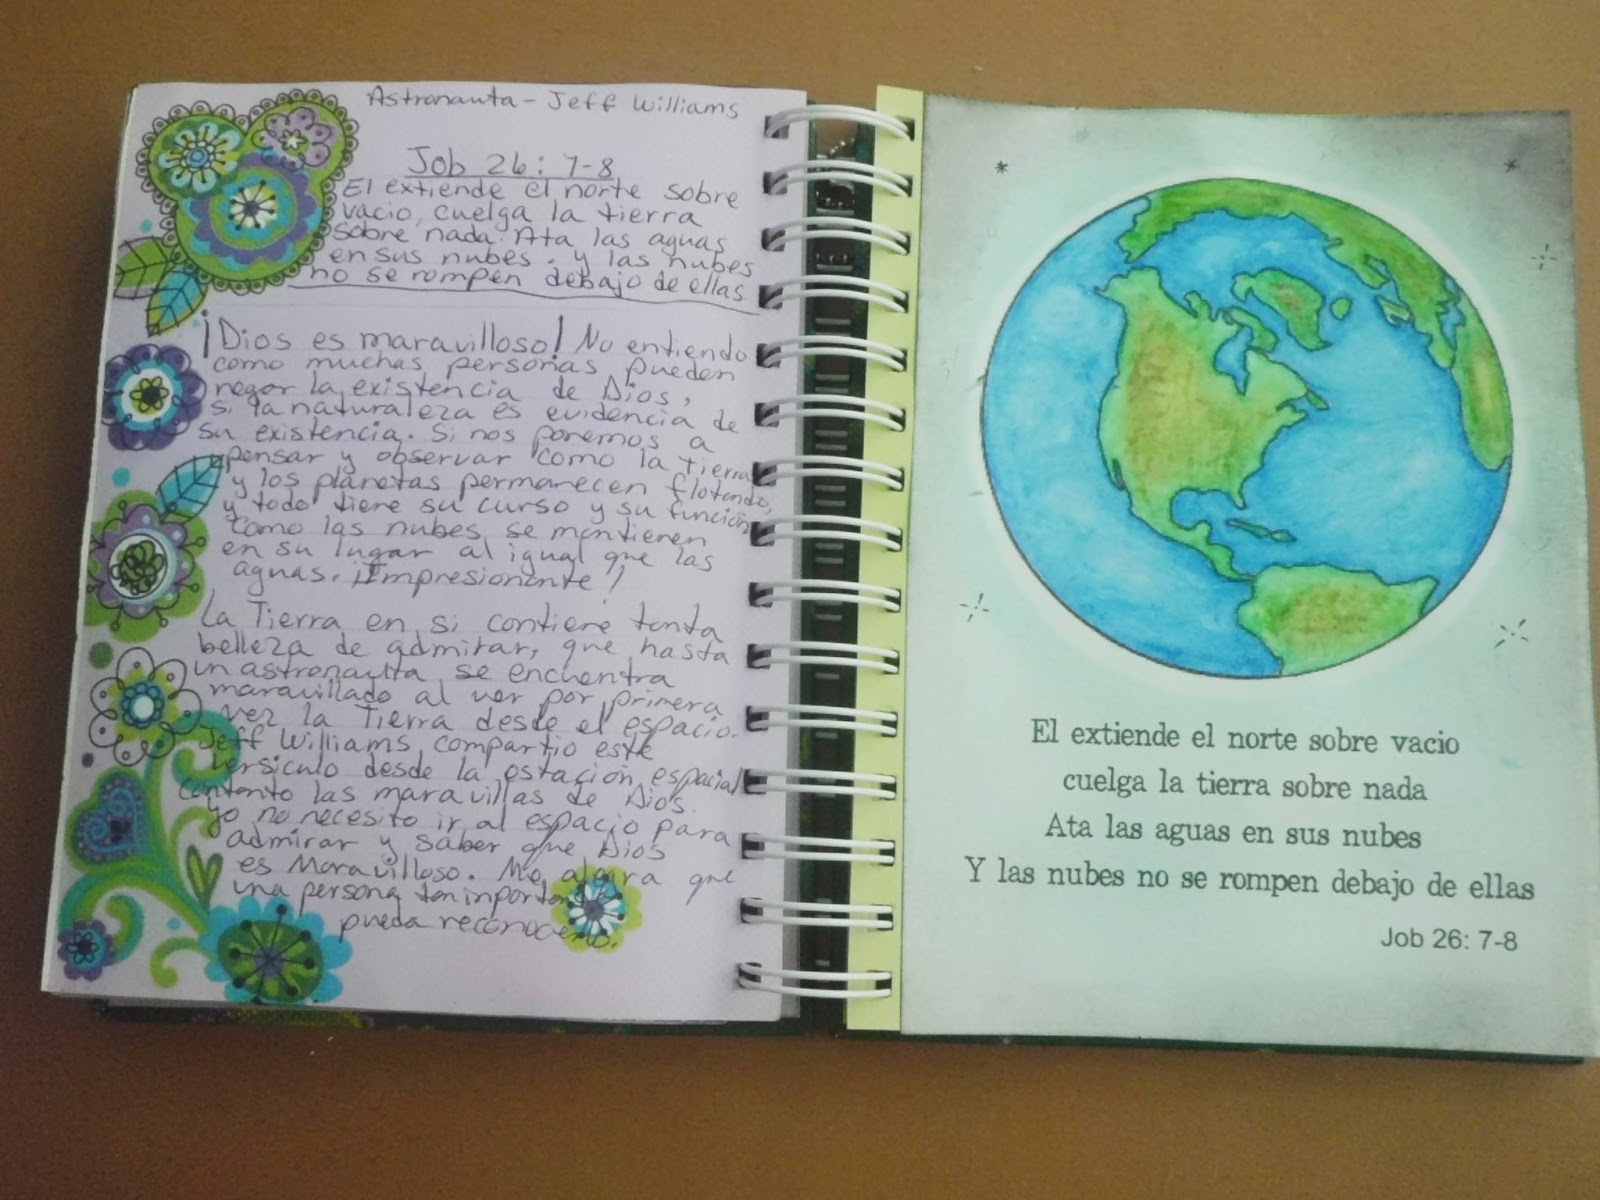 Astronauta - Jeff Williams
Job 26: 7-8
El extiende el norte sobre
vacio, cuelga la tierra
sobre nada. Ata las aguas
en sus nubes. y las nubes
no se rompen debajo de ellas
¡Dios es maravilloso! No entiendo
como muchas personas pueden
negar la existencia de Dios,
si la naturaleza es evidencia de
su existencia. Si nos ponemos a
pensar y observar como la tierra
y los planetas permanecen flotando,
y todo tiene su curso y su función
como las nubes se mantienen
en su lugar al igual que las
aguas. ¡Impresionante!
La Tierra en si contiene tanta
belleza de admirar, que hasta
un astronauta se encuentra
maravillado al ver por primera
vez la Tierra desde el espacio.
Jeff Williams compartio este
versiculo desde la estación espacial
las maravillas de Dios.
yo no necesito ir al espacio para
admirar y saber que Dios
es Maravilloso. Me alegra que
una persona tan importante
pueda reconocerlo.
El extiende el norte sobre vacio
cuelga la tierra sobre nada
Ata las aguas en sus nubes
Y las nubes no se rompen debajo de ellas
Job 26: 7-8